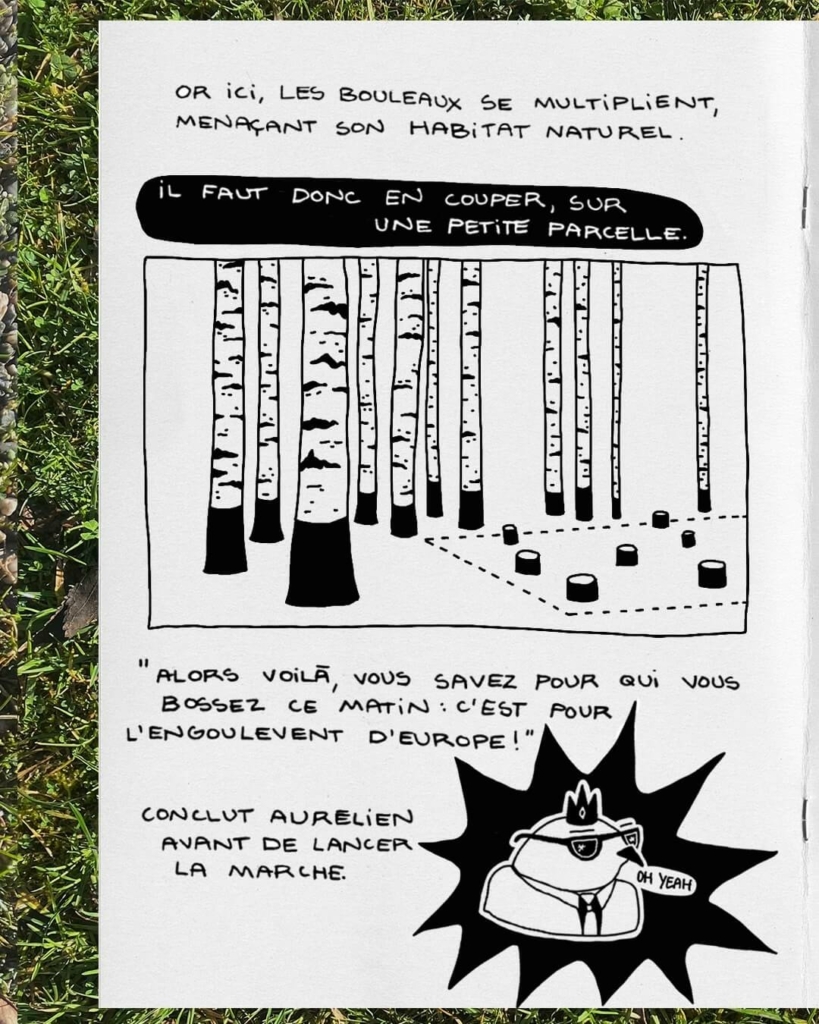 OR ICI, LES BOULEAUX SE MULTIPLIENT,
MENAÇANT SON HABITAT NATUREL.
IL FAUT DONC EN COUPER, SUR
UNE PETITE PARCELLE.
"ALORS VOILÀ, VOUS SAVEZ POUR QUI VOUS
BOSSEZ CE MATIN : C'EST POUR
L'ENGOULEVENT D'EUROPE !"
CONCLUT AURELIEN
AVANT DE LANCER
LA MARCHE.
OH YEAH